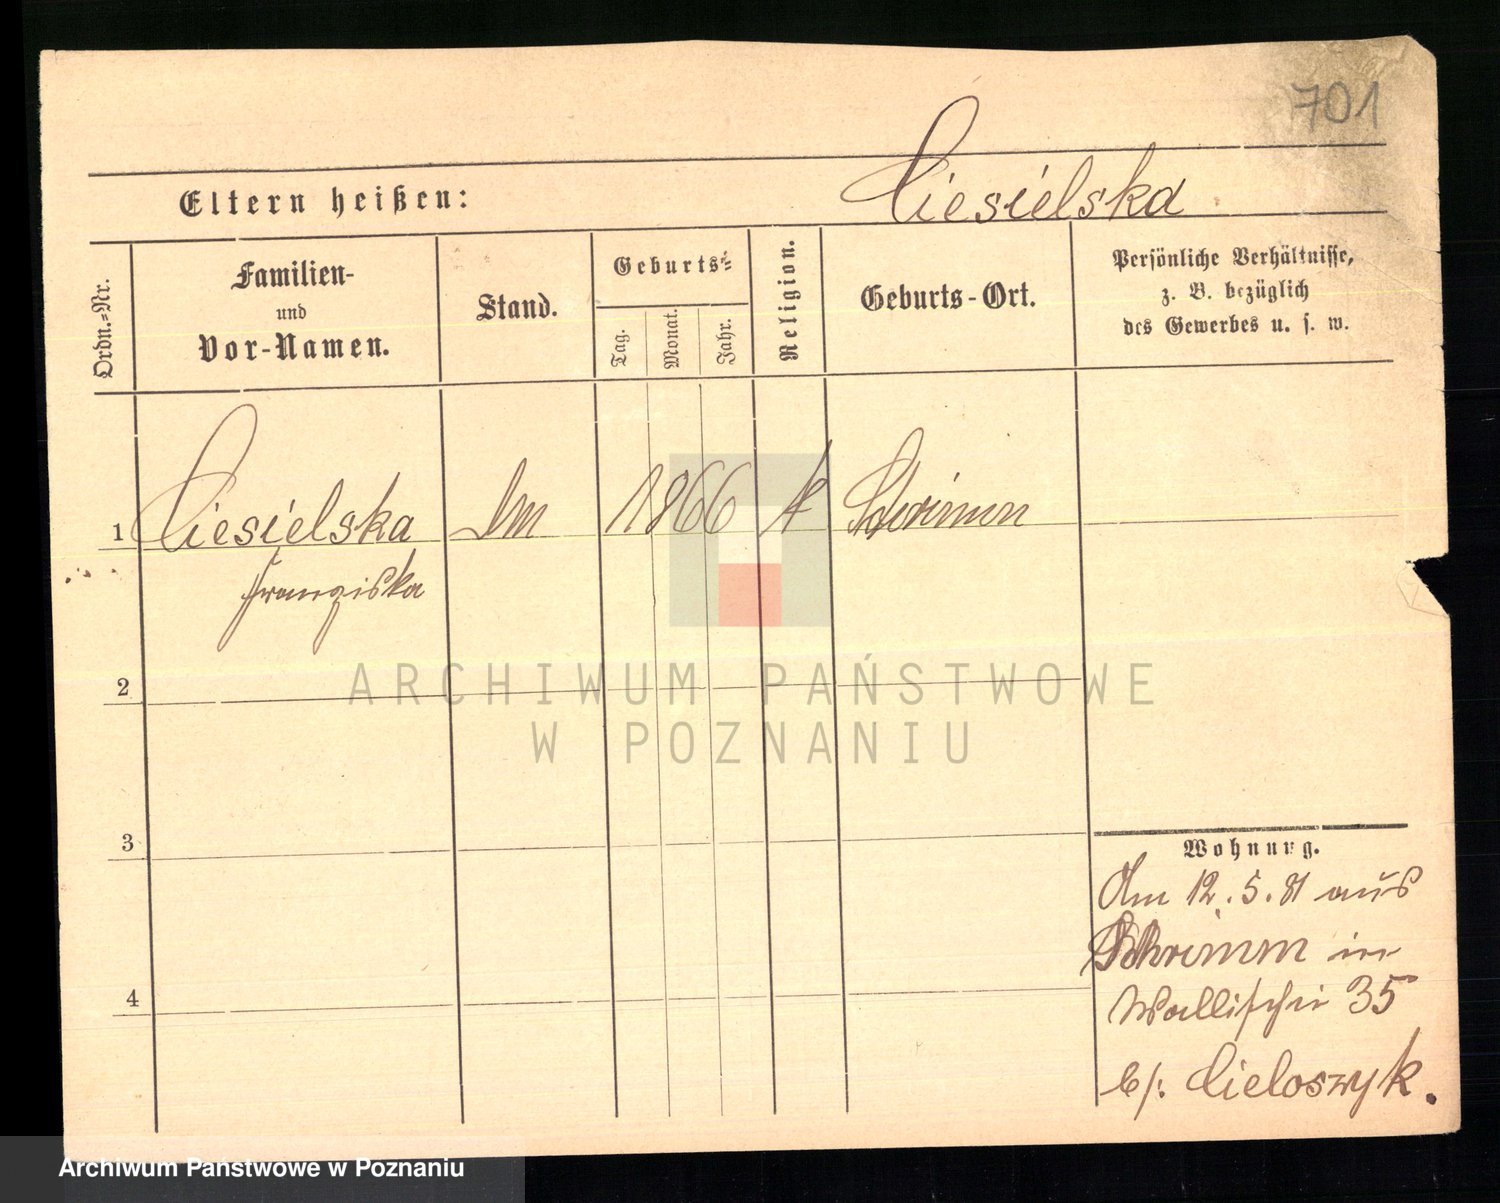 701
Ciesielska
Eltern heißen:
Ordn.-Nr.
Familien-
und
Vor-Namen.
Stand.
Geburts-
Tag.
Monat.
Jahr.
Religion.
Geburts-Ort.
Persönliche Verhältnisse,
z. B. bezüglich
des Gewerbes u. s. w.
1 Ciesielska 1866 k Schrimm
Franziska
2
3
4
Wohnung.
Am 12.5.81 aus
Schrimm in
Wallischei 35
b/: Cieloszyk.
ARCHIWUM PAŃSTWOWE
W POZNANIU
Archiwum Państwowe w Poznaniu